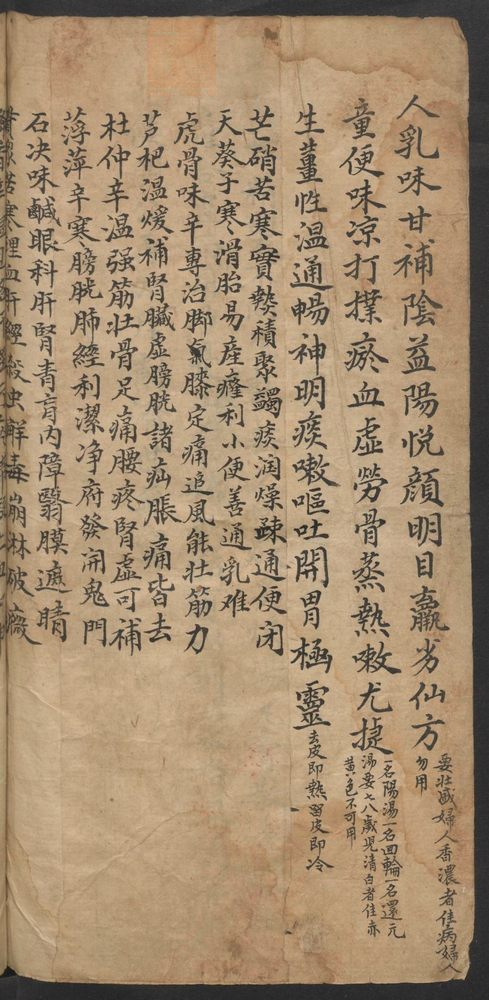 人乳味甘補陰益陽悅顏明目羸劣仙方
要壯盛婦人香濃者佳病婦人
勿用
童便味凉打撲瘀血虛勞骨蒸熱嗽尤捷
一名陽湯一名回輪一名還元
湯要七八歲児清白者佳赤
黃色不可用
生薑性温通暢神明痰嗽嘔吐開胃極靈
去皮即熱畱皮即冷
芒硝苦寒實熱積聚蠲痰润燥疎通便闭
天葵子寒滑胎易産癃利小便善通乳难
虎骨味辛專治脚氣膝定痛追風能壮筋力
芦杷温煖補腎臟虛膀胱諸疝脹痛皆去
杜仲辛温强筋壮骨足痛腰疼腎虛可補
萍辛寒膀胱肺經利潔净府發洴鬼門
石决味鹹眼科肝腎青盲内障翳膜遮睛
苦寒理血肝經殺虫解毒崩淋